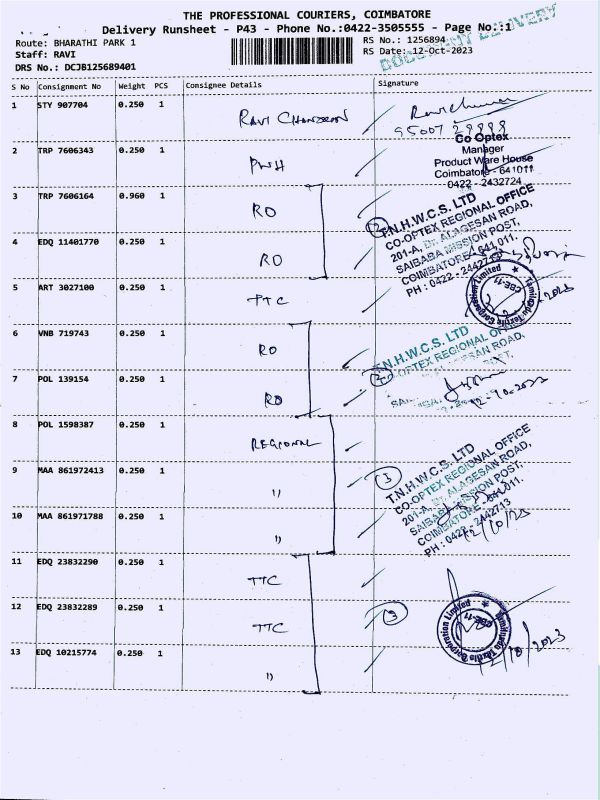 THE PROFESSIONAL COURIERS, COIMBATORE
Delivery Runsheet - P43 - Phone No.:0422-3505555 - Page No.:1
DOCUMENT DELIVERY
Route: BHARATHI PARK 1
RS No.: 1256894
Staff: RAVI
RS Date: 12-Oct-2023
DRS No.: DCJB125689401
S No Consignment No Weight PCS Consignee Details Signature
1 STY 907704 0.250 1
95007 29898
Co Optex
Manager
Product Ware House
Coimbatore - 641011
0422 - 2432724
2 TRP 7606343 0.250 1 PWH
3 TRP 7606164 0.960 1 RO
T.N.H.W.C.S. LTD
CO-OPTEX REGIONAL OFFICE
201-A, Dr. ALAGESAN ROAD,
SAIBABA MISSION POST,
COIMBATORE - 641 011.
PH : 0422 - 2442713
4 EDQ 11401770 0.250 1 RO
5 ART 3027100 0.250 1 TTC
Tamilnadu Textile Corporation Limited
CBE-11
2023
6 VNB 719743 0.250 1 RO
T.N.H.W.C.S. LTD
CO-OPTEX REGIONAL
7 POL 139154 0.250 1 RO
2
12-10-2023
8 POL 1598387 0.250 1 REGIONAL
9 MAA 861972413 0.250 1 "
3
T.N.H.W.C.S. LTD
CO-OPTEX REGIONAL OFFICE
201-A, Dr. ALAGESAN ROAD,
SAIBABA MISSION POST,
COIMBATORE - 641 011.
PH : 0422 - 2442713
12/10/23
10 MAA 861971788 0.250 1 "
11 EDQ 23832290 0.250 1 TTC
12 EDQ 23832289 0.250 1 TTC
3
Tamilnadu Textile Corporation Limited
CBE-11
12/10/2023
13 EDQ 10215774 0.250 1 "